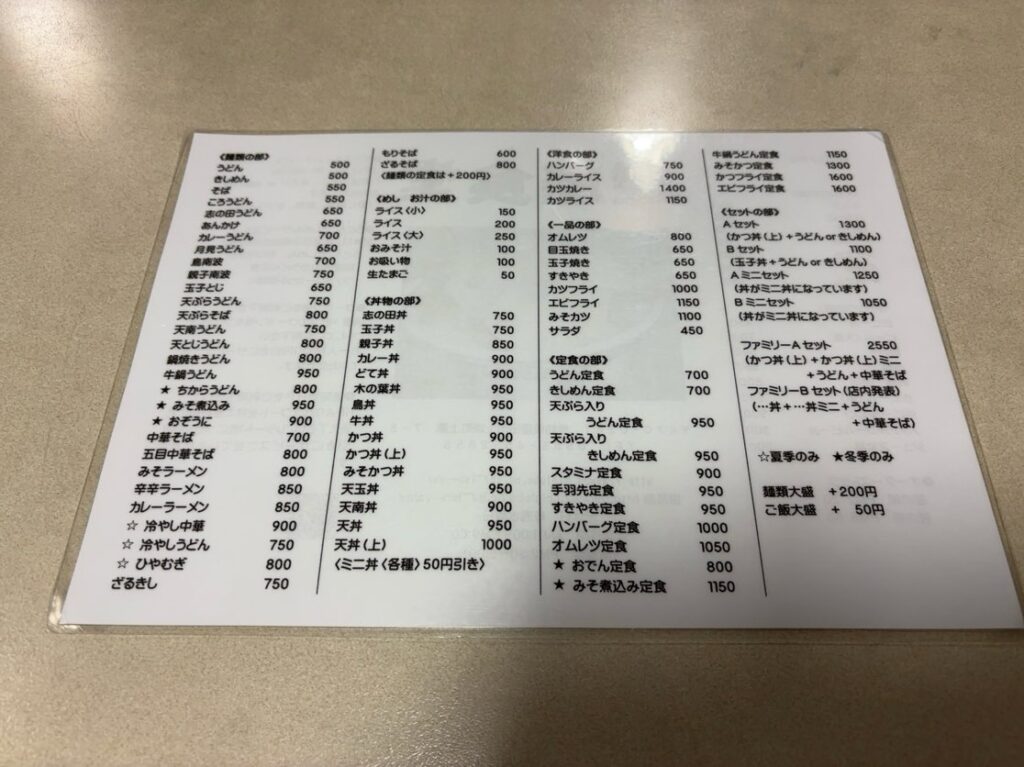 〈麺類の部〉
うどん 500
きしめん 500
そば 550
ころうどん 550
志の田うどん 650
あんかけ 650
カレーうどん 700
月見うどん 650
鳥南波 700
親子南波 750
玉子とじ 650
天ぷらうどん 750
天ぷらそば 800
天南うどん 750
天とじうどん 800
鍋焼きうどん 800
牛鍋うどん 950
★ ちからうどん 800
★ みそ煮込み 950
★ おぞうに 900
中華そば 700
五目中華そば 800
みそラーメン 800
辛辛ラーメン 850
カレーラーメン 850
☆ 冷やし中華 900
☆ 冷やしうどん 750
☆ ひやむぎ 800
ざるきし 750
もりそば 600
ざるそば 800
〈麺類の定食は+200円〉
〈めし お汁の部〉
ライス〈小〉 150
ライス 200
ライス〈大〉 250
おみそ汁 100
お吸い物 100
生たまご 50
〈丼物の部〉
志の田丼 750
玉子丼 750
親子丼 850
カレー丼 900
どて丼 900
木の葉丼 950
鳥丼 950
牛丼 950
かつ丼 900
かつ丼(上) 950
みそかつ丼 950
天玉丼 950
天南丼 900
天丼 950
天丼(上) 1000
〈ミニ丼〈各種〉50円引き〉
〈洋食の部〉
ハンバーグ 750
カレーライス 900
カツカレー 1400
カツライス 1150
〈一品の部〉
オムレツ 800
目玉焼き 650
玉子焼き 650
すきやき 650
カツフライ 1000
エビフライ 1150
みそカツ 1100
サラダ 450
〈定食の部〉
うどん定食 700
きしめん定食 700
天ぷら入り
うどん定食 950
天ぷら入り
きしめん定食 950
スタミナ定食 900
手羽先定食 950
すきやき定食 950
ハンバーグ定食 1000
オムレツ定食 1050
★ おでん定食 800
★ みそ煮込み定食 1150
牛鍋うどん定食 1150
みそかつ定食 1300
かつフライ定食 1600
エビフライ定食 1600
〈セットの部〉
Aセット 1300
(かつ丼(上)+うどんorきしめん)
Bセット 1100
(玉子丼+うどんorきしめん)
Aミニセット 1250
(丼がミニ丼になっています)
Bミニセット 1050
(丼がミニ丼になっています)
ファミリーAセット 2550
(かつ丼(上)+かつ丼(上)ミニ
+うどん+中華そば
ファミリーBセット(店内発表)
(…丼+…丼ミニ+うどん
+中華そば)
☆夏季のみ ★冬季のみ
麺類大盛 +200円
ご飯大盛 + 50円